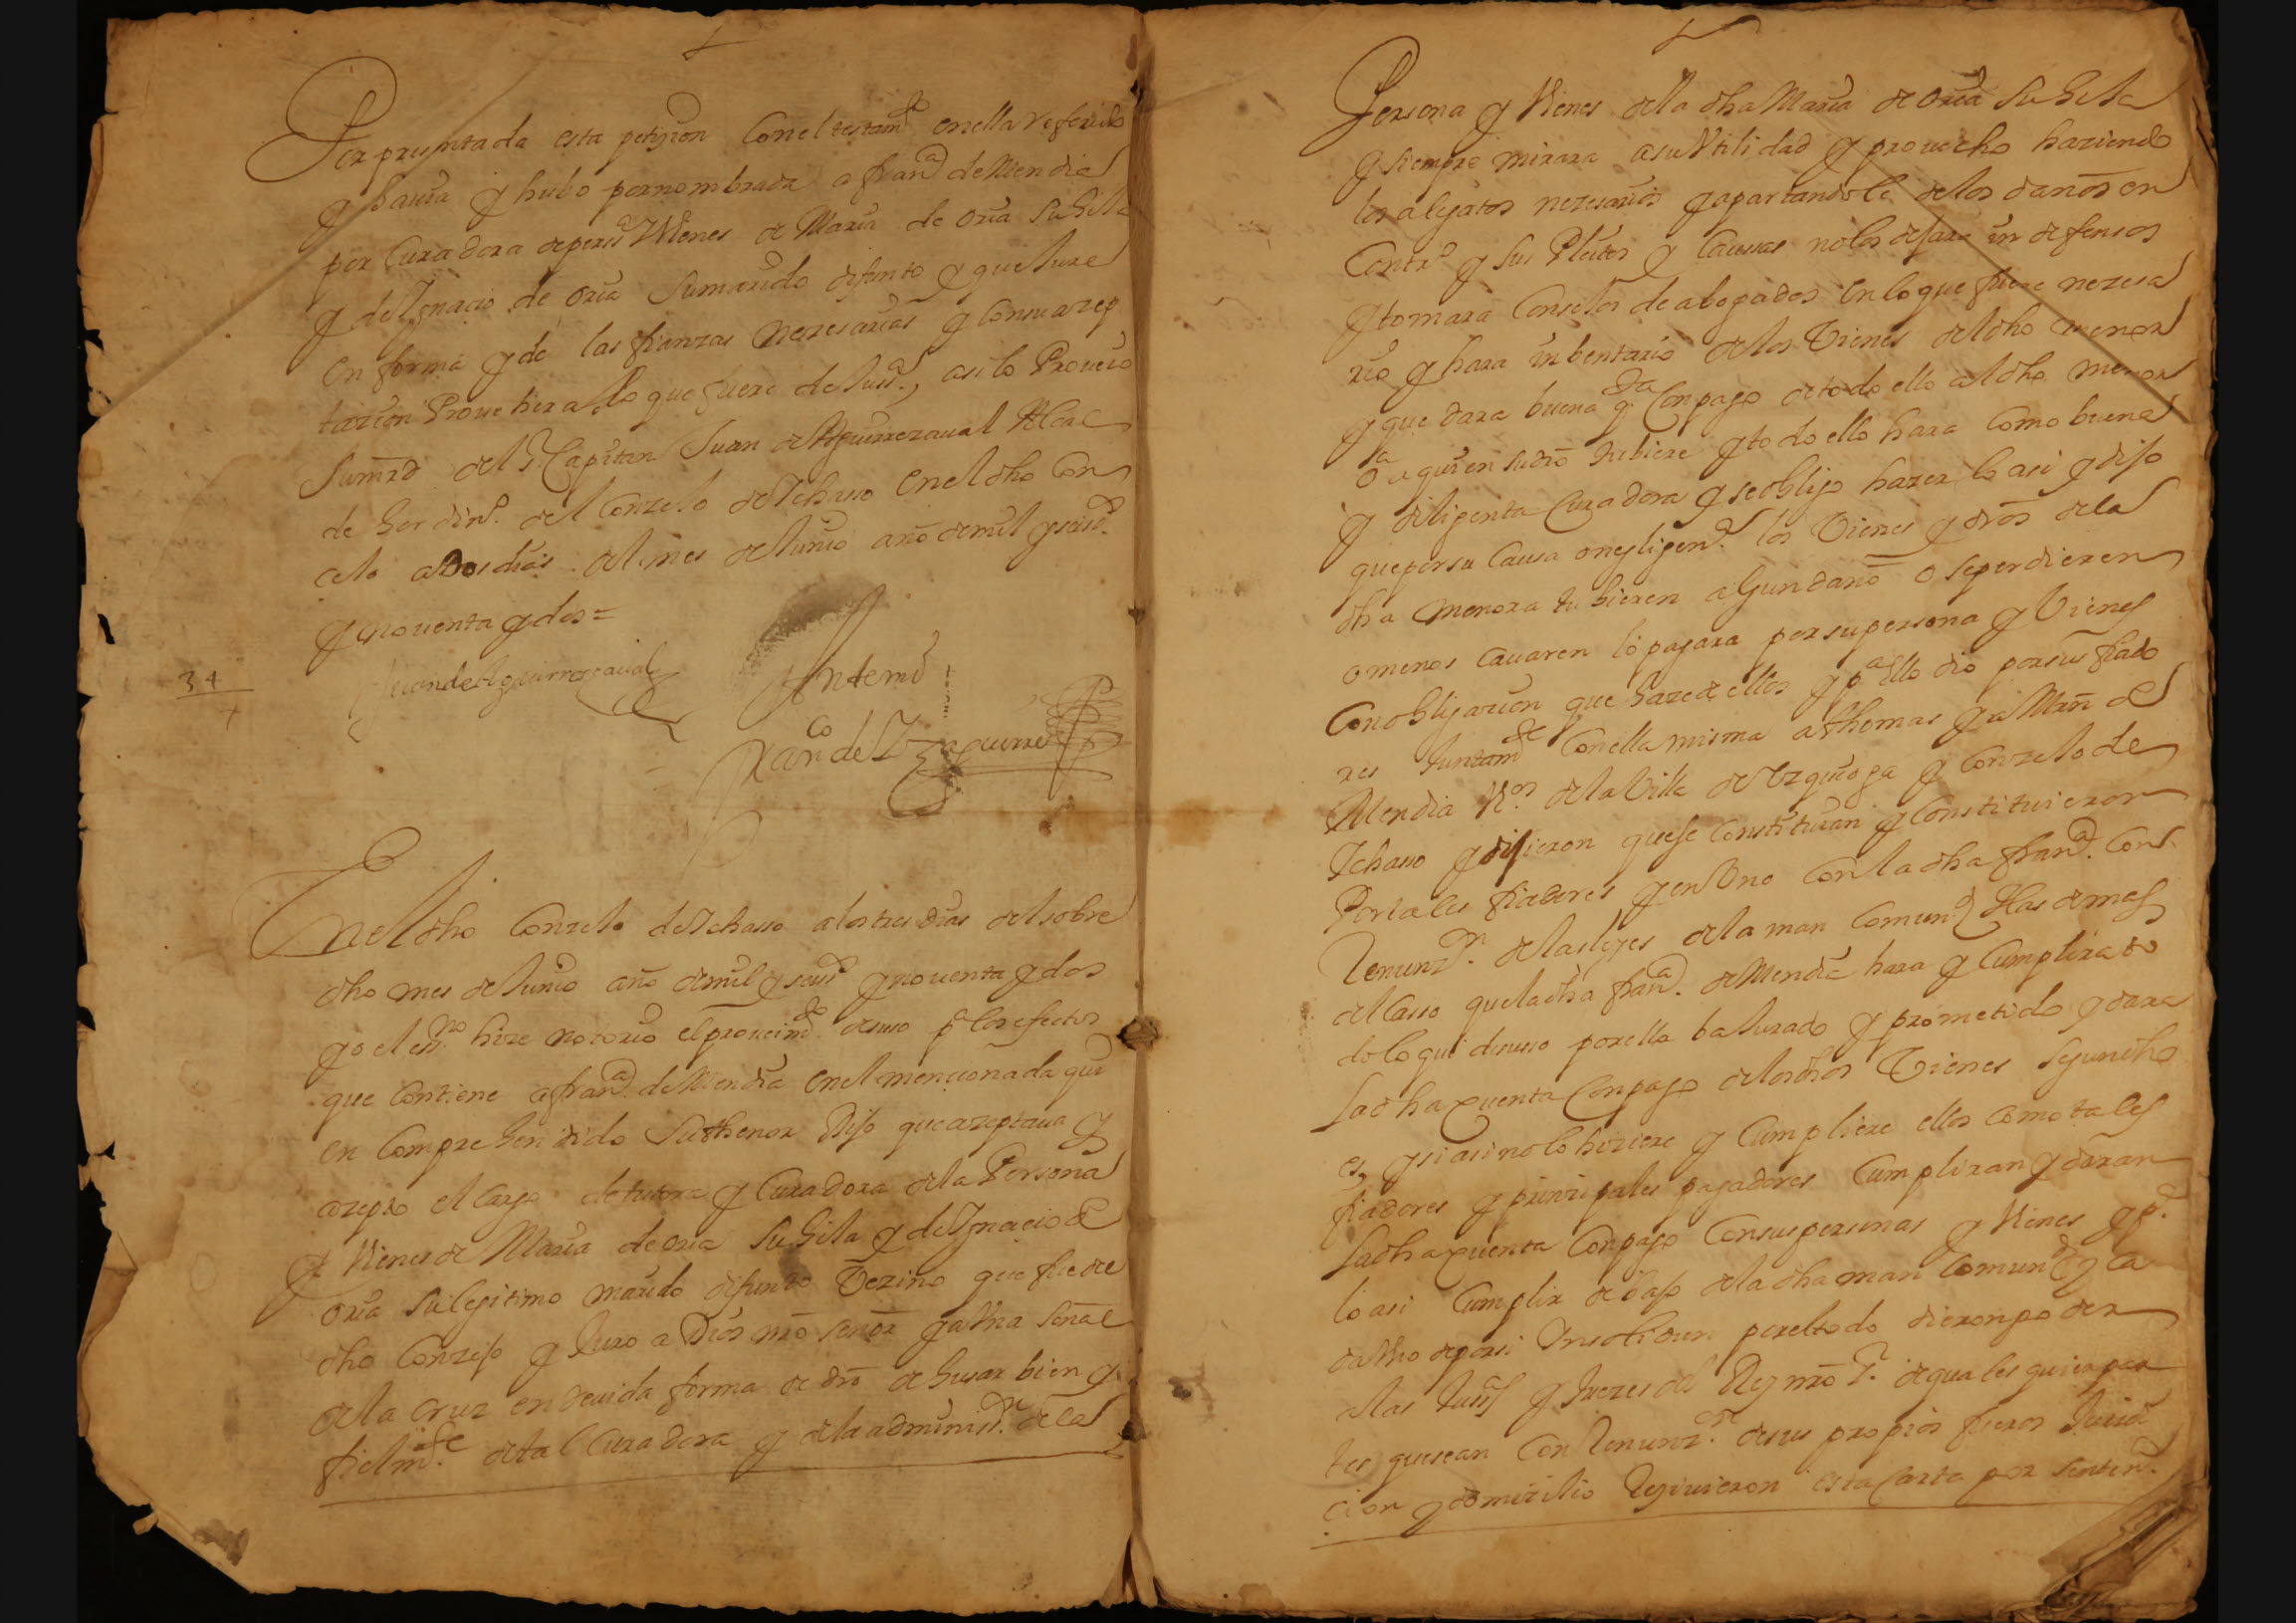 Por presentada esta petizion con el testamto en ella referido
y hauia y hubo por nombrada a franca de Mendia
por Curadora de persa Vienes de Maria de oria su hija
y de Ygnacio de oria su marido difunto y que Jure
en forma y de las fianzas nezesarias y con su azep
tazion Prouehera lo que fuere de Justa, asi lo Proueio
su mrd del sr Capitan Juan de Aguirrezaual Alcal
de hordino del Conzejo de Ychasso en el dho Con
cejo a Dos dias del mes de Junio año de mil y seiso
y nouenta y dos =
Juan de Aguirrezaual
Ante mi
Franco de Yzaguirre
34
En el dho Conzejo de Ychasso a los tres dias del sobre
dho mes de Junio año de mil y seiso y nouenta y dos
yo el essno hize notorio el proueimto de suso pa los efectos
que contiene a franca de Mendia en el mencionada quien
en comprehendido su thenor Dijo que azeptaua y
azepto el cargo de tutora y Curadora de la Persona
y Vienes de Maria de oria su hija y de Ygnacio de
oria su legitimo marido difunto Vezino que fue de
dho Conzejo y Juro a Dios nro señor y a Vna señal
de la cruz en deuida forma de dro de husar bien y
fielmte de tal Curadora y de la administon de la
Persona y Vienes de la dha Maria de oria su hija
y siempre mirara a su Vtilidad y prouecho haziendo
los alegatos nezesarios y apartandole de los daños en
Contro y sus Pleitos y Caussas no los dejara in defensos
y tomara Consejos de abogados en lo que fuere nezesa
rio y hara inbentario de los Vienes del dho menor
y que dara buena qta Con pago de todo ello al dho menor
o a quien su dro hubiere y todo ello hara como buena
y diligente Curadora y se obligo hazer lo asi y dijo
que por su Causa o negligena los Vienes y dros de la
dha menora hubieren algun daño o se perdieren
o menos cauaren lo pagara por su persona y Vienes
Con obligazion que haze de ellos y pa ello dio por sus fiado
res Juntamte con ella misma a Thomas y a Mañ de
Mendia Vos de la Villa de Ezquioga y Conzejo de
Ychasso y dijieron que se constituian y Constituieron
Por tales fiadores y en Vno Con la dha franca Con
Renunzon de las leyes de la man comund y las demas
del Casso que la dha franca de Mendia hara y Cumplira to
do lo que de suso por ella ba Jurado y prometido y dara
la dha quenta Con pago de los dhos Vienes segun dho
es, y si asi no lo hiziere y Cumpliere ellos como tales
fiadores y principales pagadores Cumpliran y daran
la dha quenta Con pago Con sus personas y Vienes y pa
lo asi Cumplir debajo de la dha man comund y ca
da Vno de por si Ynsolidun por el todo dieron poder
a las Justas y Juezes del Rey nro sr de quales quier par
tes que sean Con Renunzon de sus propios fueros Juridi
cion y domizilio Reziuieron esta Carta por sentena